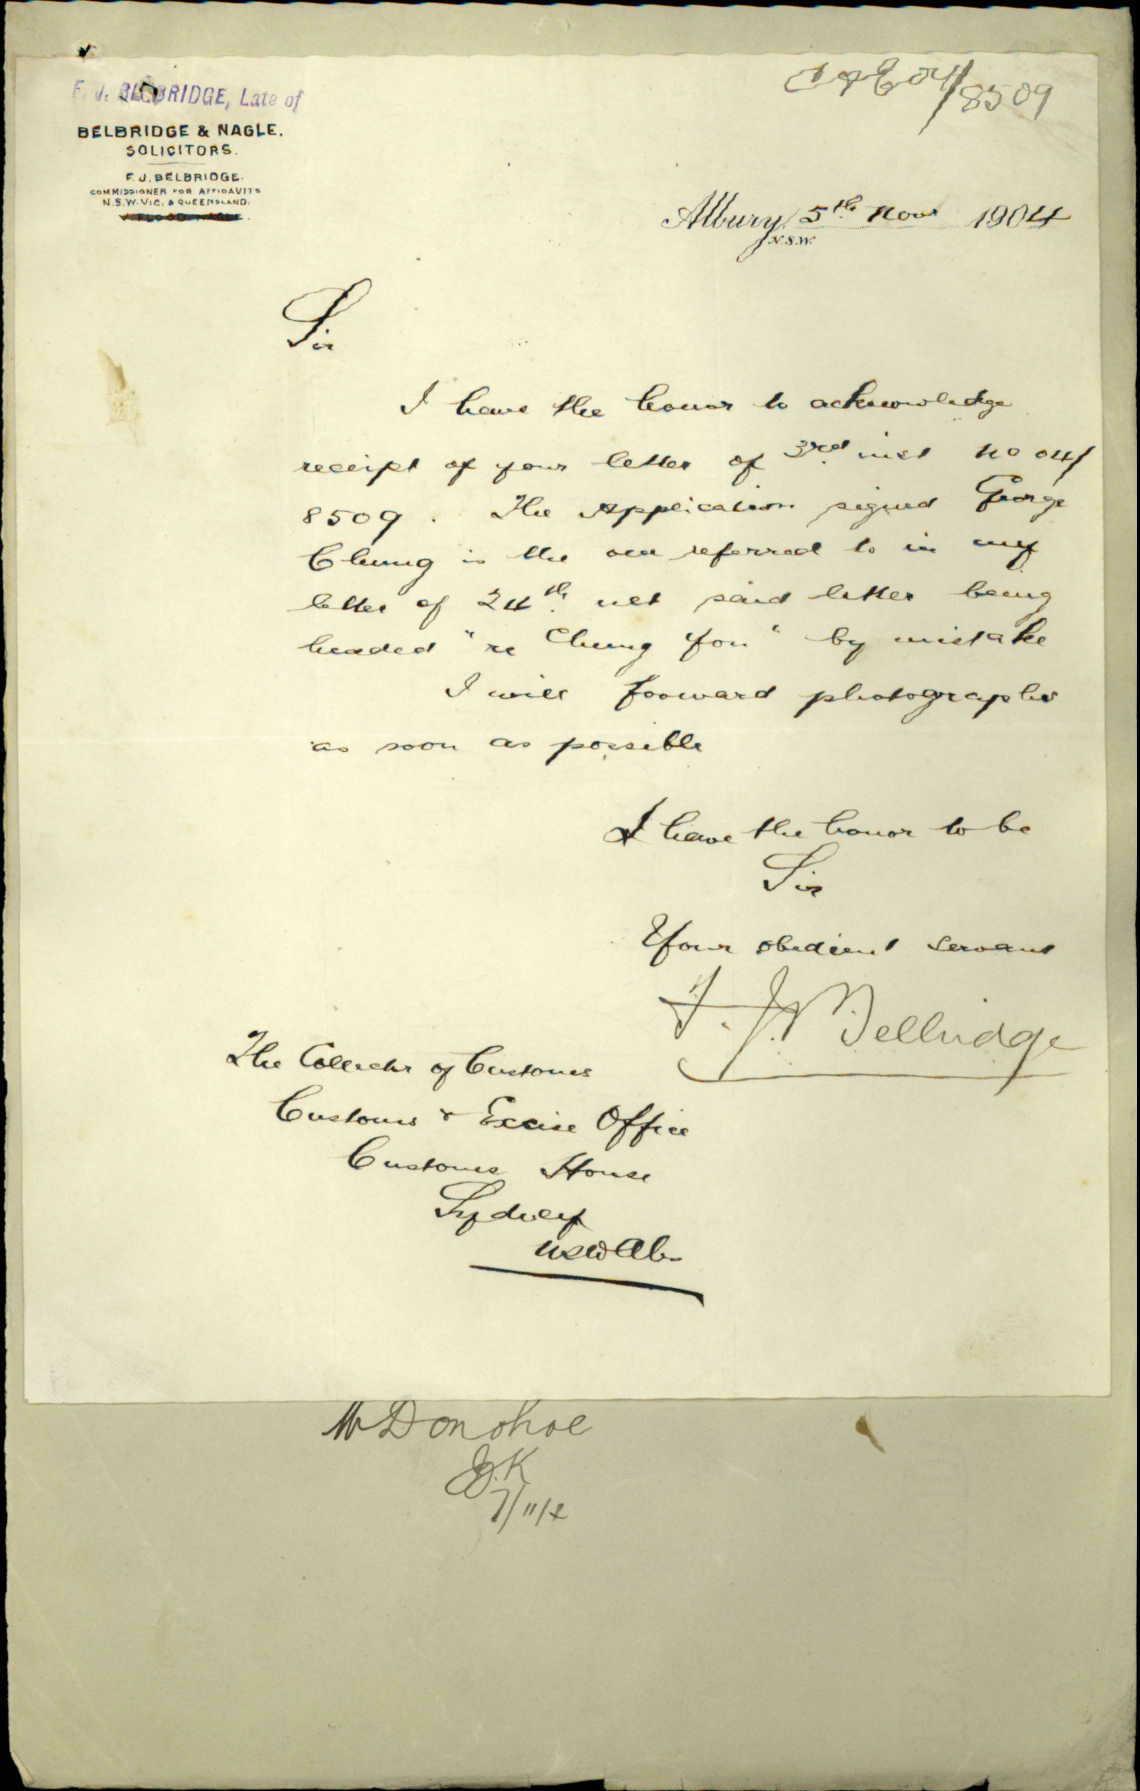 C & E 04/8509
F. J. BELBRIDGE, Late of
BELBRIDGE & NAGLE.
SOLICITORS.
F. J. BELBRIDGE.
COMMISSIONER FOR AFFIDAVITS
N.S.W. VIC. & QUEENSLAND.
Albury 5th Novr 1904
N.S.W.
Sir
I have the honor to acknowledge
receipt of your letter of 3rd inst No 04/
8509. The Application signed George
Chung is the one referred to in my
letter of 24th ult said letter being
headed "re Chung You" by mistake
I will foward photographs
as soon as possible
I have the honor to be
Sir
Your obedient servant
F. J. Belbridge
The Collector of Customs
Customs & Excise Office
Customs House
Sydney
Mr Donohoe
J.K
7/11/4